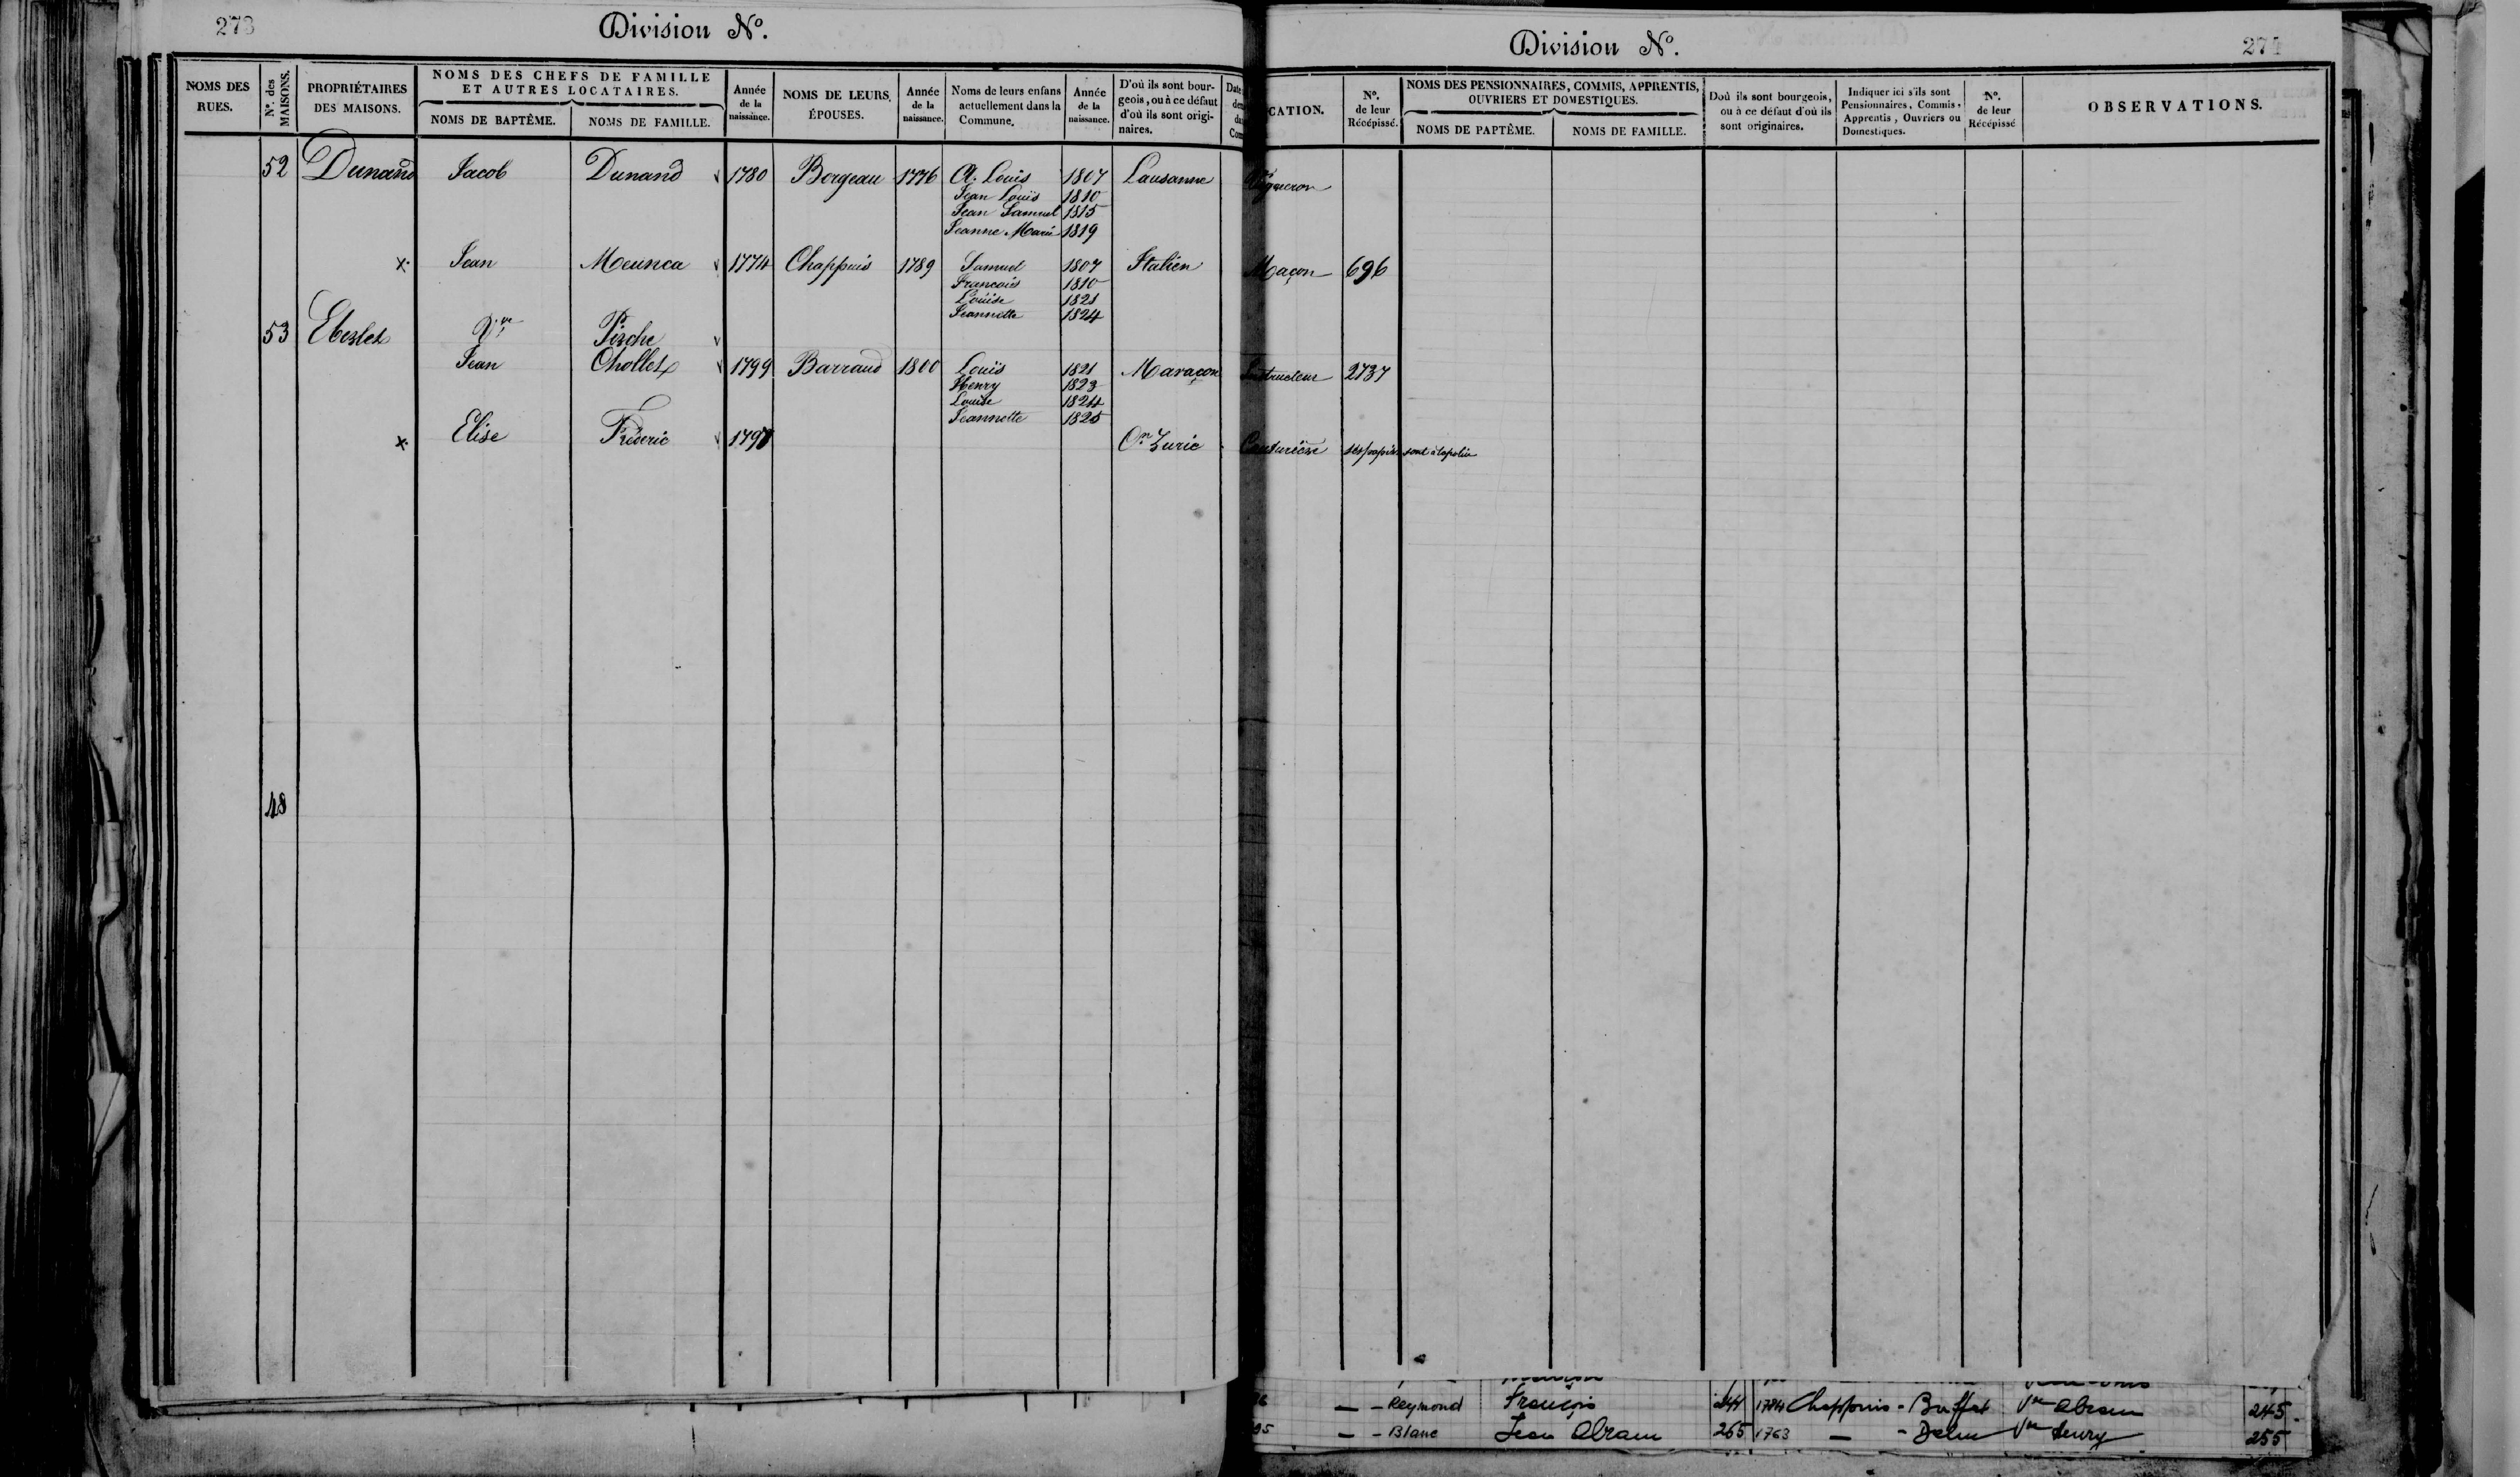 273
Division Nº.
NOMS DES RUES.
Nºs. des MAISONS.
PROPRIÉTAIRES DES MAISONS.
NOMS DES CHEFS DE FAMILLE ET AUTRES LOCATAIRES.
NOMS DE BAPTÊME.
NOMS DE FAMILLE.
Année de la naissance.
NOMS DE LEURS ÉPOUSES.
Année de la naissance.
Noms de leurs enfans actuellement dans la Commune.
Année de la naissance.
D'où ils sont bourgeois, ou à ce défaut d'où ils sont originaires.
52 Dunand Jacob Dunand 1780 Borgeau 1776 A. Louis 1807 Lausanne
Jean Louis 1810
Jean Samuel 1815
Jeanne Marie 1819
x. Jean Meunca 1774 Chappuis 1789 Samuel 1807 Italien
François 1810
Louise 1821
Jeannette 1824
53 Eberlet Vve Pirche
Jean Chollet 1799 Barraud 1800 Louis 1821 Maraçon
Henry 1823
Louise 1824
Jeannette 1825
x. Elise Fréderic Zuric
48
Division Nº.
274
CATION.
Nº. de leur Récépissé.
NOMS DES PENSIONNAIRES, COMMIS, APPRENTIS, OUVRIERS ET DOMESTIQUES.
NOMS DE PAPTÊME.
NOMS DE FAMILLE.
Doù ils sont bourgeois, ou à ce défaut d'où ils sont originaires.
Indiquer ici s'ils sont Pensionnaires, Commis, Apprentis, Ouvriers ou Domestiques.
Nº. de leur Récépissé
OBSERVATIONS.
Vigneron
Maçon 696
Instructeur 2737
Couturière ses papiers sont à la police
— - Reymond François 244 1784 Chappuis - Buffat Vve Abram 245
— - Blanc Jean Abram 265 1763 — - Vve Henry 255